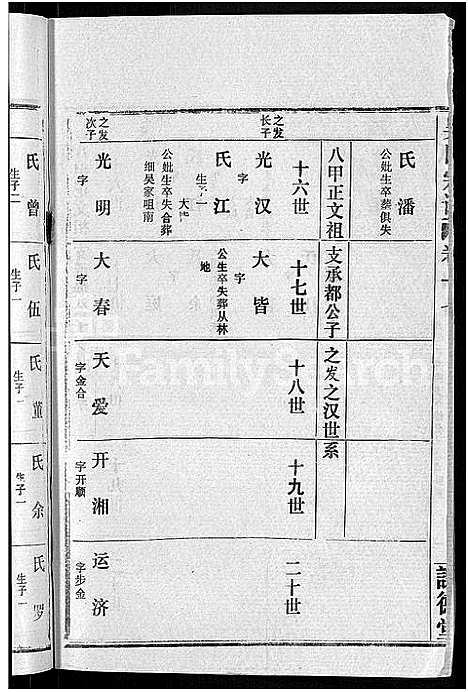 氏潘
公妣生卒葬俱失
八甲正文祖支承都公子之发之汉世系
十六世
十七世
十八世
十九世
二十世
之发长子
光汉
字
氏江
生子一
大皆
大皆
字
公生卒失葬从林地
公妣生卒失合葬细吴家咀南
之发次子
光明
字
大春
字
天爱
字金合
开湘
字开顺
运济
字步金
氏曾
生子二
氏伍
生子一
氏董
生子一
氏余
生子一
氏罗
生子一